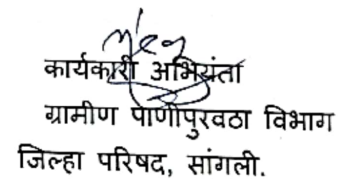 कार्यकारी अभियंता
ग्रामीण पाणीपुरवठा विभाग
जिल्हा परिषद, सांगली.